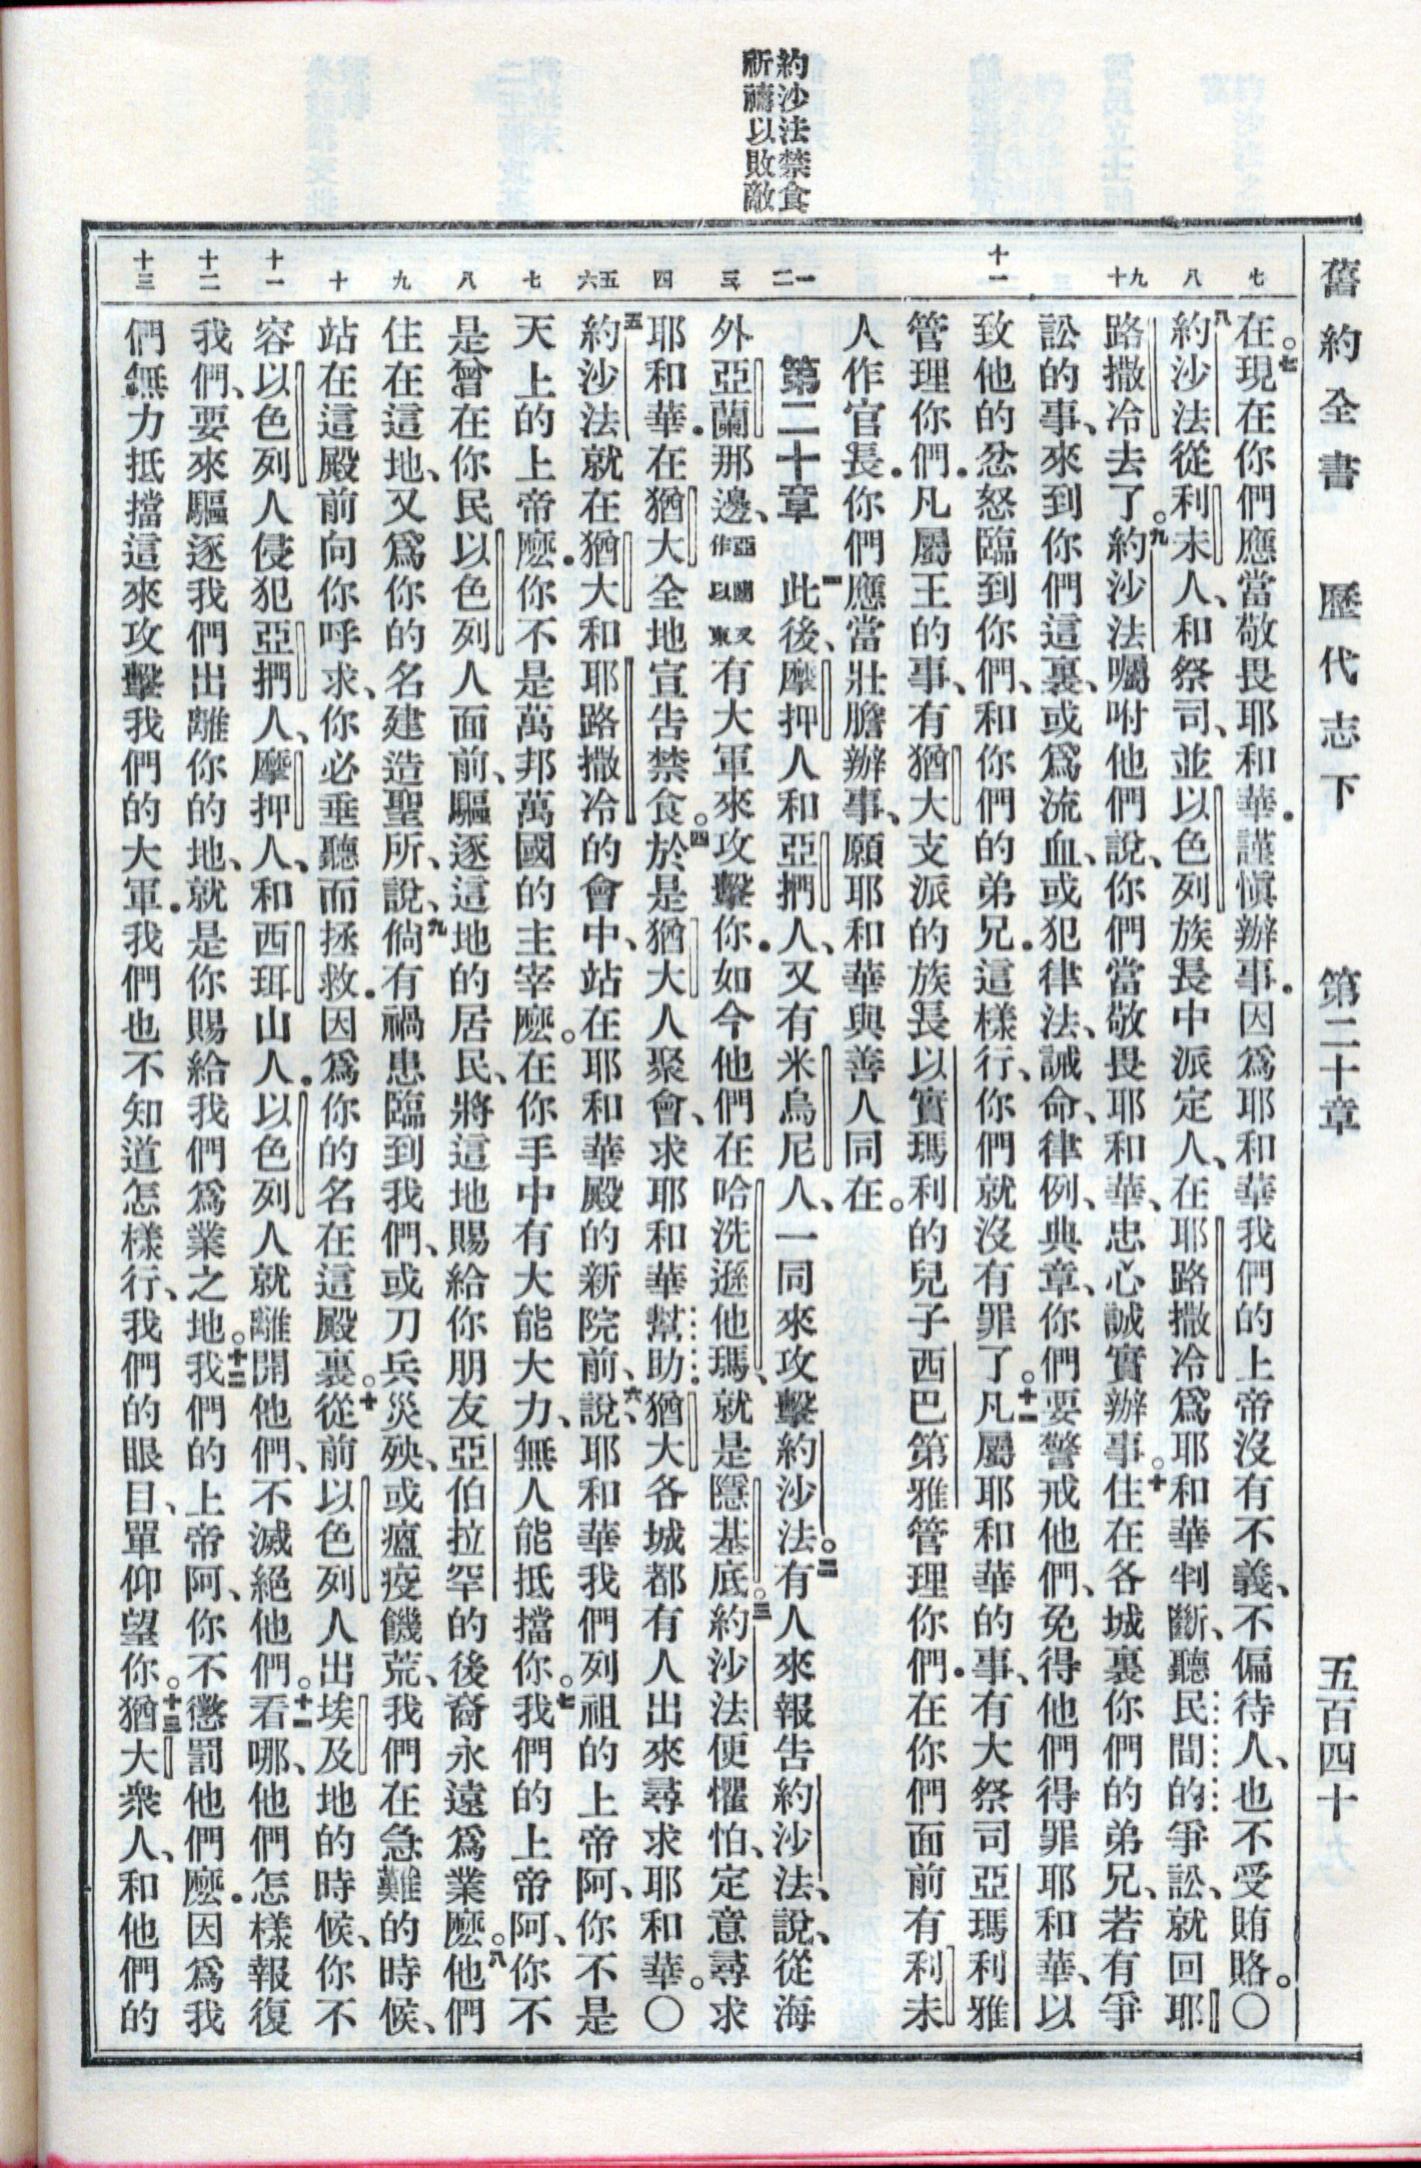 舊約全書 歷代志下 第二十章 五百四十
約沙法禁食
祈禱以敗敵
七 八 九 十 十一 一 二 三 四 五 六 七 八 九 十 十一 十二 十三
在。七現在你們應當敬畏耶和華．謹愼辦事．因爲耶和華我們的上帝沒有不義、不偏待人、也不受賄賂。○
八約沙法從利未人、和祭司、並以色列族長中派定人、在耶路撒冷爲耶和華判斷、聽民間的爭訟、就回耶
路撒冷去了。九約沙法囑咐他們說、你們當敬畏耶和華、忠心誠實辦事。十住在各城裏你們的弟兄、若有爭
訟的事、來到你們這裏、或爲流血、或犯律法、誡命、律例、典章、你們要警戒他們、免得他們得罪耶和華、以
致他的忿怒臨到你們、和你們的弟兄．這樣行、你們就沒有罪了。十一凡屬耶和華的事、有大祭司亞瑪利雅
管理你們．凡屬王的事、有猶大支派的族長以實瑪利的兒子西巴第雅管理你們．在你們面前有利未
人作官長．你們應當壯膽辦事、願耶和華與善人同在。
第二十章 一此後、摩押人和亞捫人、又有米烏尼人、一同來攻擊約沙法。二有人來報告約沙法、說、從海
外亞蘭那邊、亞蘭又作以東有大軍來攻擊你．如今他們在哈洗遜他瑪、就是隱基底。三約沙法便懼怕、定意尋求
耶和華．在猶大全地宣告禁食。四於是猶大人聚會、求耶和華幫助．猶大各城都有人出來尋求耶和華。○
五約沙法就在猶大和耶路撒冷的會中、站在耶和華殿的新院前、六說、耶和華我們列祖的上帝阿、你不是
天上的上帝麼．你不是萬邦萬國的主宰麼。在你手中有大能大力、無人能抵擋你。七我們的上帝阿、你不
是曾在你民以色列人面前、驅逐這地的居民、將這地賜給你朋友亞伯拉罕的後裔永遠爲業麼。八他們
住在這地、又爲你的名建造聖所、說、九倘有禍患臨到我們、或刀兵災殃、或瘟疫饑荒、我們在急難的時候、
站在這殿前向你呼求、你必垂聽而拯救．因爲你的名在這殿裏。十從前以色列人出埃及地的時候、你不
容以色列人侵犯亞捫人、摩押人、和西珥山人．以色列人就離開他們、不滅絕他們。十一看哪、他們怎樣報復
我們、要來驅逐我們出離你的地、就是你賜給我們爲業之地。十二我們的上帝阿、你不懲罰他們麼．因爲我
們無力抵擋這來攻擊我們的大軍．我們也不知道怎樣行、我們的眼目、單仰望你。十三猶大衆人、和他們的